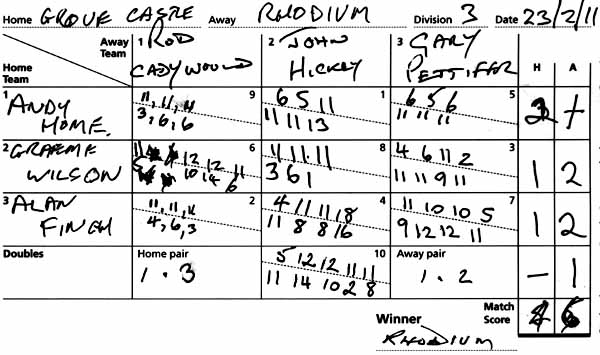 Home GROVE CASTLE Away RHODIUM Division 3 Date 23/2/11
Away Team 1 ROD CADYWOULD 2 JOHN HICKEY 3 GARY PETTIFOR H A
Home Team
1 ANDY HOME. 9 11, 11, 11 1 6 5 11 5 6 5 6
3, 6, 6 11 11 13 11 11 11
2 GRAEME WILSON 6 11 12 12 11 8 11 11 11 3 4 6 11 2 1 2
5 10 14 6 3 6 1 11 11 9 11
3 ALAN FINCH 2 11, 11, 11 4 4 11 11 18 7 11 10 10 5 1 2
4, 6, 3 11 8 8 16 9 12 12 11
Doubles Home pair 10 5 12 12 11 11 Away pair - 1
1 . 3 11 14 10 2 8 1 . 2
Winner Match Score
RHODIUM